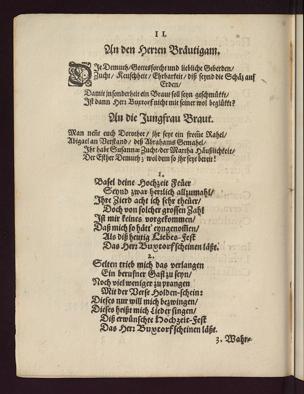 II.
An den Herren Bräutigam.
DIe Demuth/Gottesforcht und liebliche Geberden/
Zucht/ Keuschheit/ Ehrbarkeit/ diß seynd die Schätz auf
Erden/
Damit insonderheit ein Braut soll seyn geschmückt/
Ist dann Herr Buxtorf nicht mit seiner wol beglückt?
An die Jungfrau Braut.
Man nennt euch Dorothee/ ihr seyt ein Rahel/
Abigal an Verstand/ deß Abrahams Gemahel/
Ihr habt Susannæ Zucht/ der Martha Häußlichkeit/
Der Esther Demuth; wol dem so ihr seyt bereit!
1.
Basel deine Hochzeit Feüer
Seynd zwar herrlich allzumahl/
Ihre Zierd acht ich sehr theüer/
Doch von solcher grossen Zahl
Ist mir keines vorgekommen/
Daß mich so hätt' eyngenommen/
Als diß heutig Liebes-Fest
Das Herr Buxtorf scheinen läßt.
2.
Selten trieb mich das verlangen
Ein berufner Gast zu seyn/
Noch viel weniger zu prangen
Mit der Verse Holden-schein:
Dieses nur will mich bezwingen/
Dieses heißt mich Lieder singen/
Diß erwünschte Hochzeit-Fest
Das Herr Buxtorf scheinen läßt.
3. Wahr-